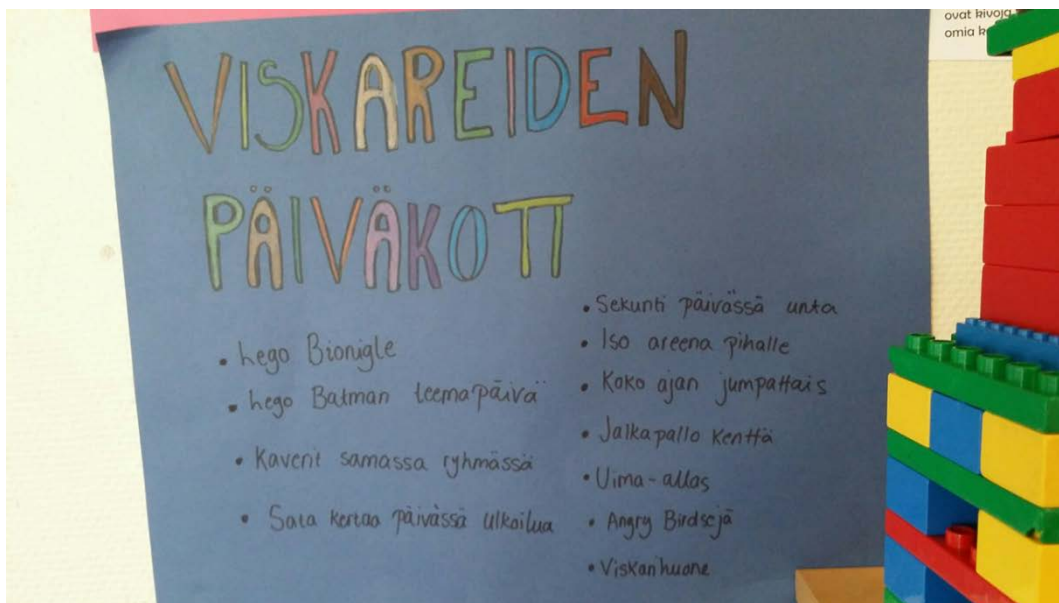 VISKAREIDEN
PÄIVÄKOTI
• Lego Bionigle
• Lego Batman teemapäivä
• Kaverit samassa ryhmässä
• Sata kertaa päivässä ulkoilua
• Sekunti päivässä unta
• Iso areena pihalle
• Koko ajan jumpattais
• Jalkapallo kenttä
• Uima-allas
• Angry Birdsejä
• Viskanhuone
ovat kivoja
omia